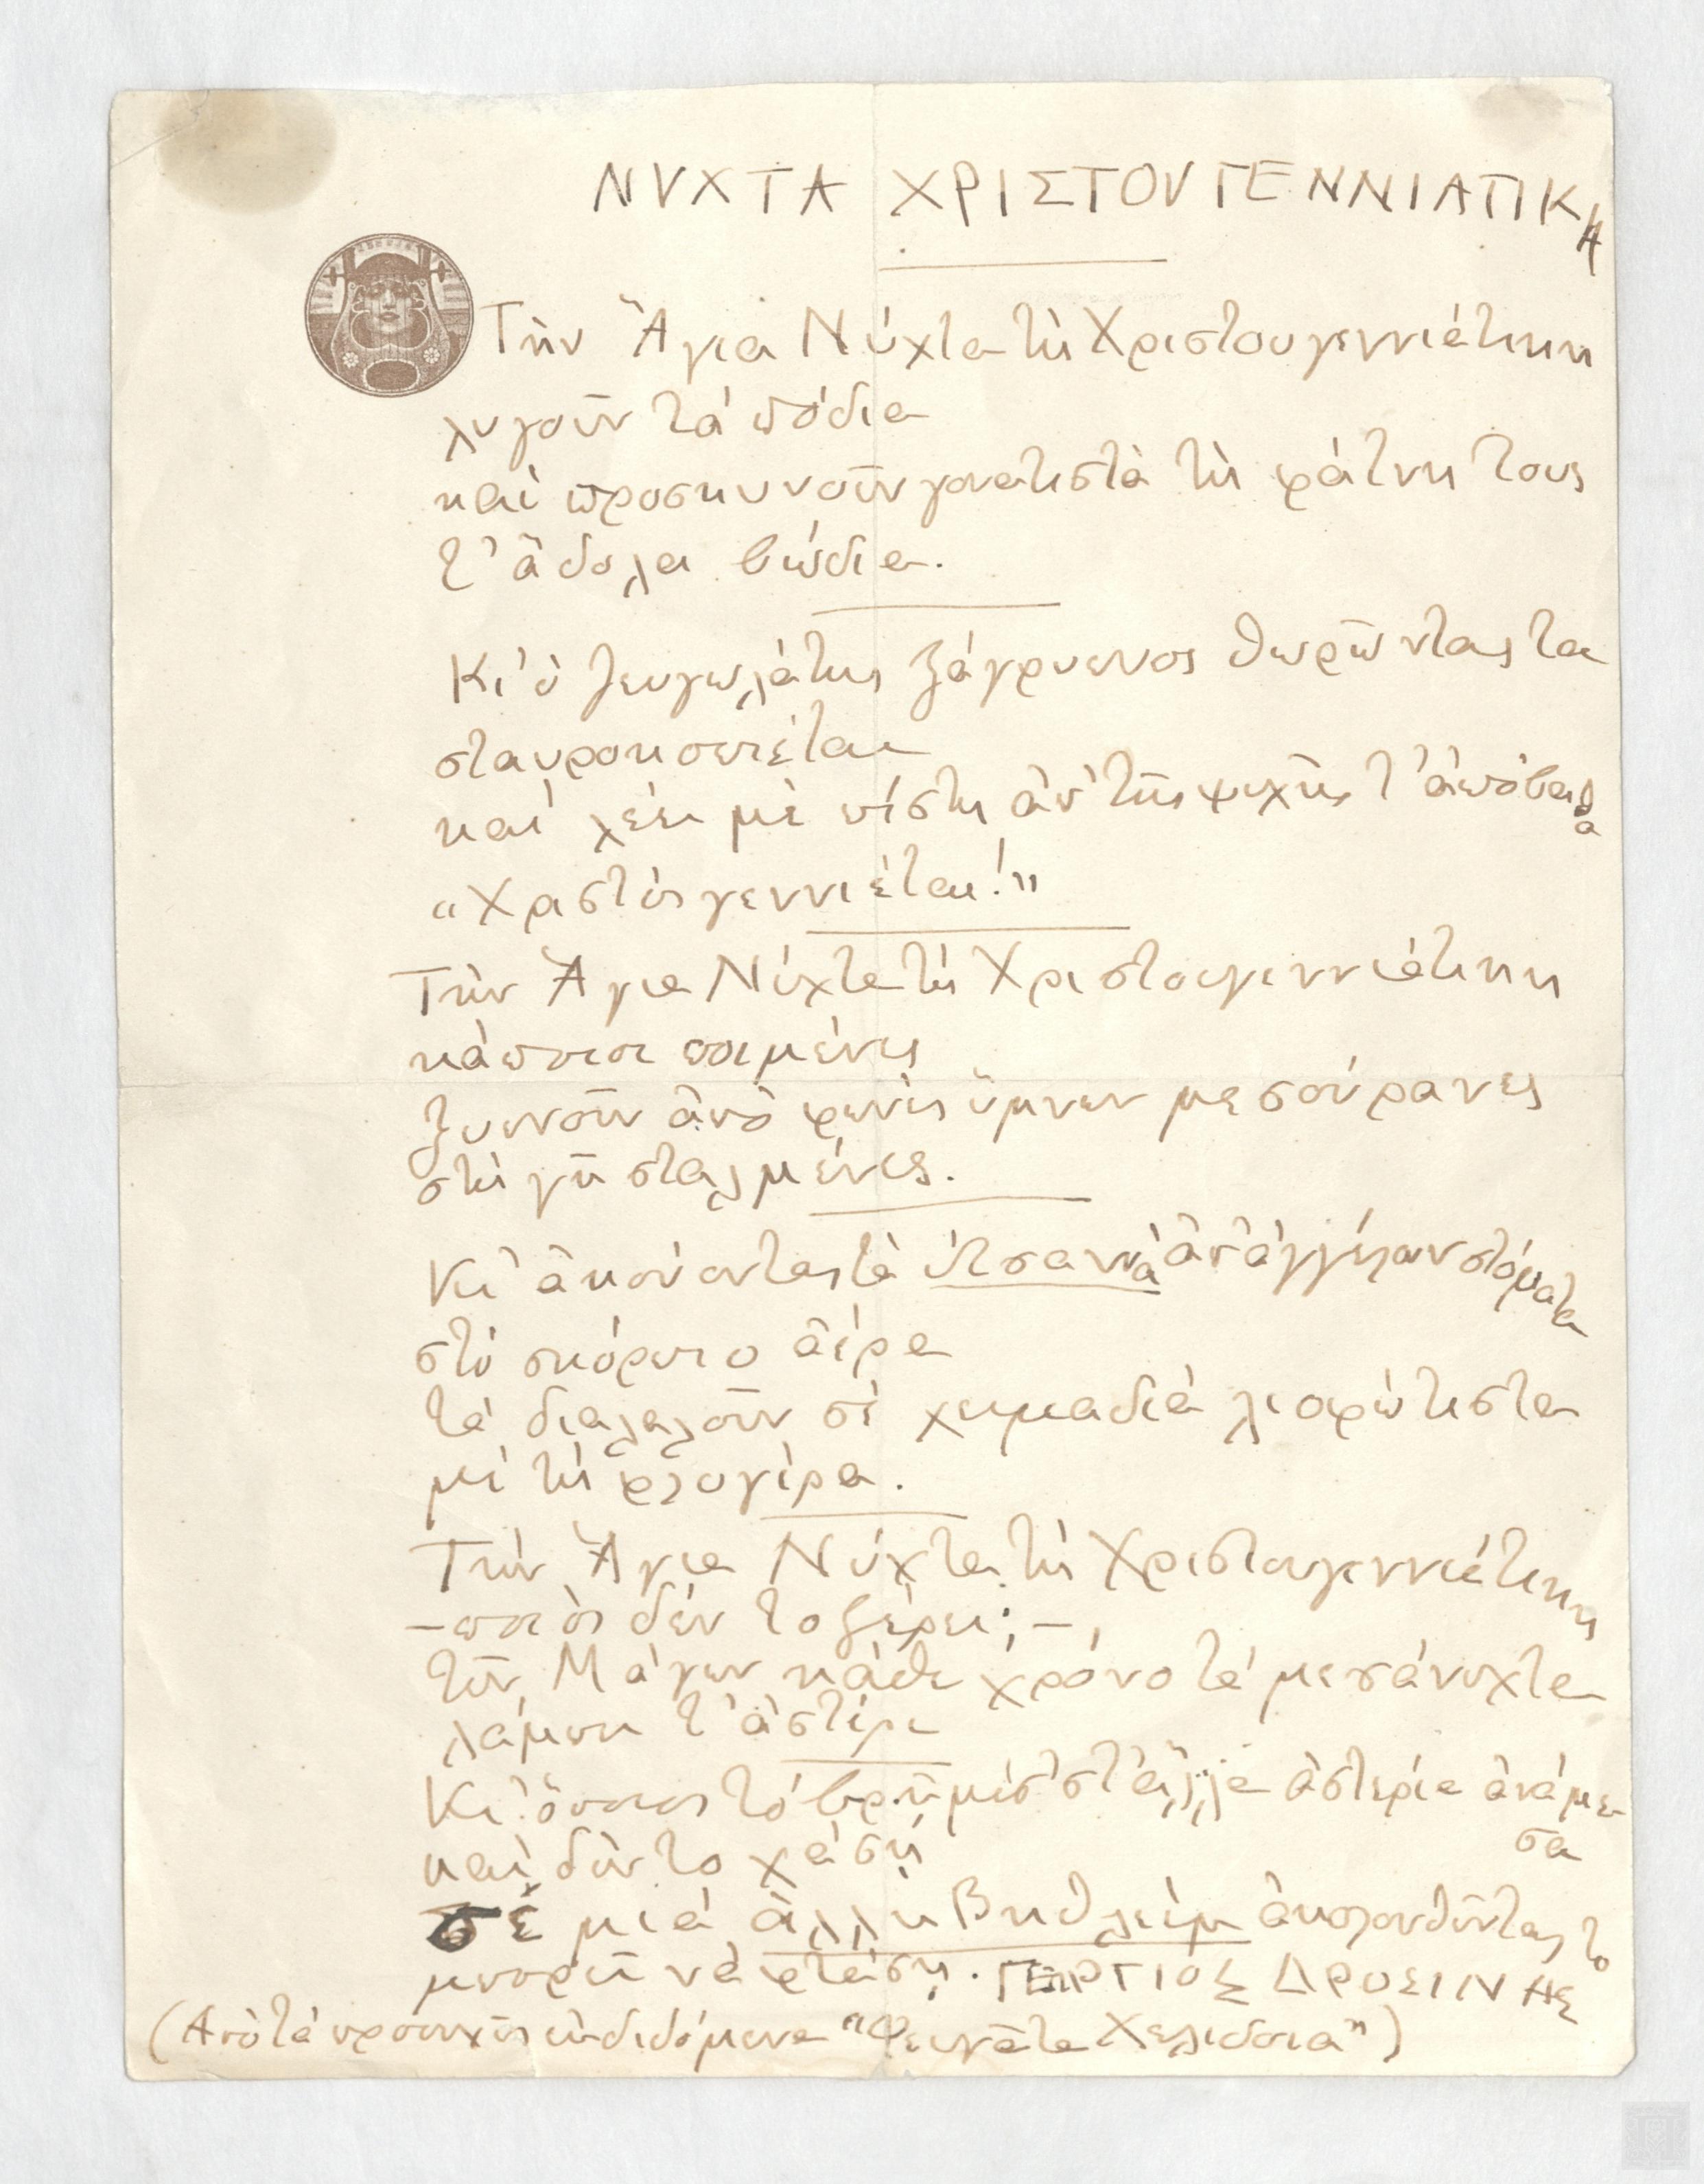 ΝΥΧΤΑ ΧΡΙΣΤΟΥΓΕΝΝΙΑΤΙΚΗ
Τὴν Ἅγια Νύχτα τὴ Χριστουγεννιάτικη
λυγοῦν τὰ πόδια
καὶ προσκυνοῦν γονατιστὰ τὴ φάτνη τους
τ' ἄδολα βώδια.
Κι' ὁ ζευγωλάτης ξάγρυπνος θωρῶντας τα
σταυροκοπιέται
καὶ λέει μὲ πίστη ἀπ' τῆς ψυχῆς τ' ἀπόβαθα
«Χριστὸς γεννιέται!»
Τὴν Ἅγια Νύχτα τὴ Χριστουγεννιάτικη
κάποιοι ποιμένες
ξυπνοῦν ἀπὸ φωνὲς ὕμνων μεσούρανες
στὴ γῆ σταλμένες.
Κι' ἀκούοντας τὰ Ὡσαννὰ ἀπ' ἀγγέλων στόματα
στὸ σκόρπιο ἀέρα
τὰ διαλαλοῦν σὲ χειμαδιὰ λιοφώτιστα
μὲ τὴ φλογέρα.
Τὴν Ἅγια Νύχτα τὴ Χριστουγεννιάτικη
– ποιὸς δὲν τὸ ξέρει; –
τῶν Μάγων κάθε χρόνο τὰ μεσάνυχτα
λάμπει τ' ἀστέρι
Κι' ὅποιος τὸ βρῆ μὲσ' στ' ἄλλα ἀστέρια ἀνάμε
σα
καὶ δὲν τὸ χάση
σὲ μιὰ ἄλλη Βηθλεὲμ ἀκολουθῶντας το
μπορεῖ νὰ φτάση. ΓΕΩΡΓΙΟΣ ΔΡΟΣΙΝΗΣ
(Ἀπὸ τὰ προσεχῶς ἐκδιδόμενα "Φευγᾶτα Χελιδόνια")